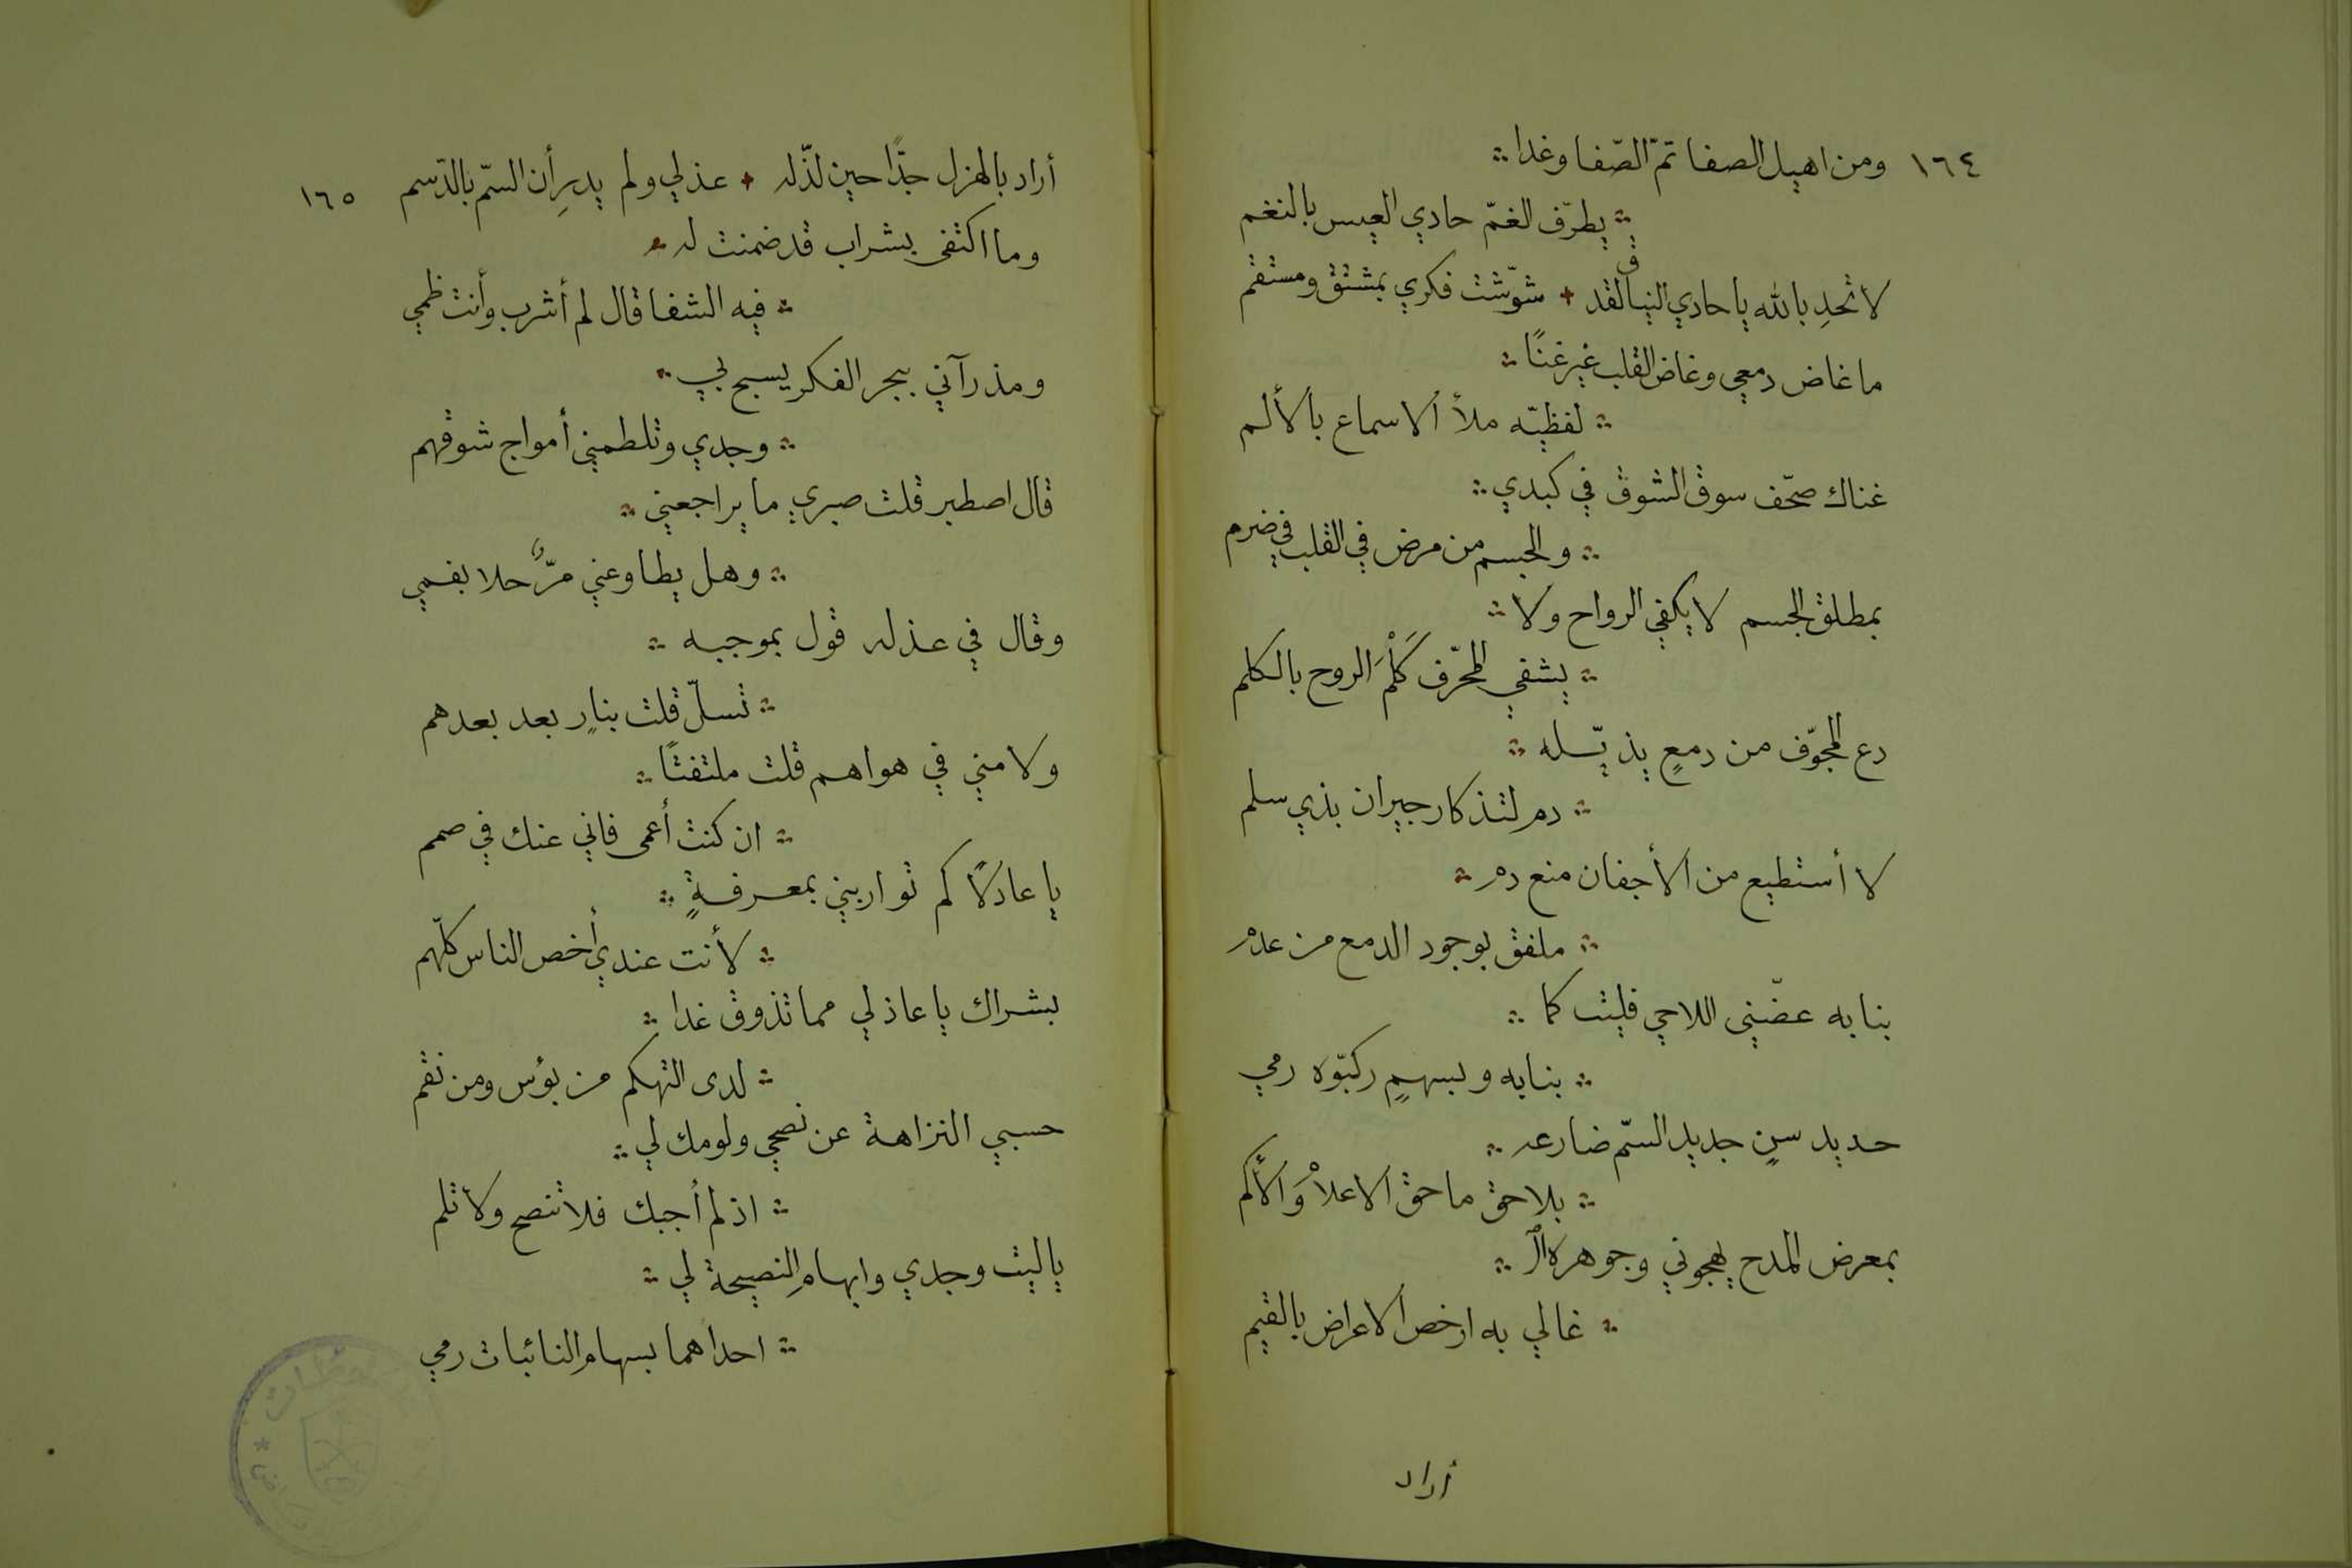 ١٦٤
ومن اهيل الصفا تمّ الصّفا وغدا
يطرّف الغمّ حادي العيس بالنغم
لا تحدِ بالله يا حادي النياق لقد شوّشت فكري بمشتق ومستقم
ما غاض دمعي وغاض القلب غير غنًا
لفظيّه ملأ الاسماع بالألم
غناك صحّف سوق الشوق في كبدي
والجسم من مرض في القلب في ضرم
بمطلق الجسم لا يكفي الرواح ولا
يشفي المحرّف كَلْمَ الروح بالكلم
دع المجوّف من دمعٍ يذيّله
دم لتذكار جيران بذي سلم
لا أستطيع من الأجفان منع دم
ملفق بوجود الدمع من عدم
بنابه عضّني اللاحي فليت كما
بنابه وبسهمٍ ركبّوه رمي
حديد سنٍ جديد السمّ ضارعه
بلاحق ماحق الاعلاْ وَالأكم
بمعرض المدح يهجوني وجوهره ال
غالي به ارخص الاعراض بالقيم
أراد
١٦٥
أراد بالهزل جدًّا حين لذّ له عذلي ولم يدرِ أن السمّ بالدّسم
وما اكتفى بشراب قد ضمنت له
فيه الشفا قال لم أشرب وأنت ظمي
ومذ رآني ببحر الفكر يسبح بي
وجدي وتلطمني أمواج شوقهم
قال اصطبر قلت صبري ما يراجعني
وهل يطاوعني مرٌّ حلا بفمي
وقال في عذله قول بموجبه
تسلّ قلت بنارٍ بعد بعدهم
ولامني في هواهم قلت ملتفتًا
ان كنت أعمى فاني عنك في صمم
يا عاذلًا كم تواربني بمعرفةٍ
لأنت عندي أخص الناس كلّهم
بشراك يا عاذلي مما تذوق غدا
لدى التهكم من بؤس ومن نقم
حسبي النزاهة عن نصحي ولومك لي
اذ لم أجبك فلا تنصح ولا تلم
يا ليت وجدي وابهامِ النصيحة لي
احداهما بسهام النائبات رمي